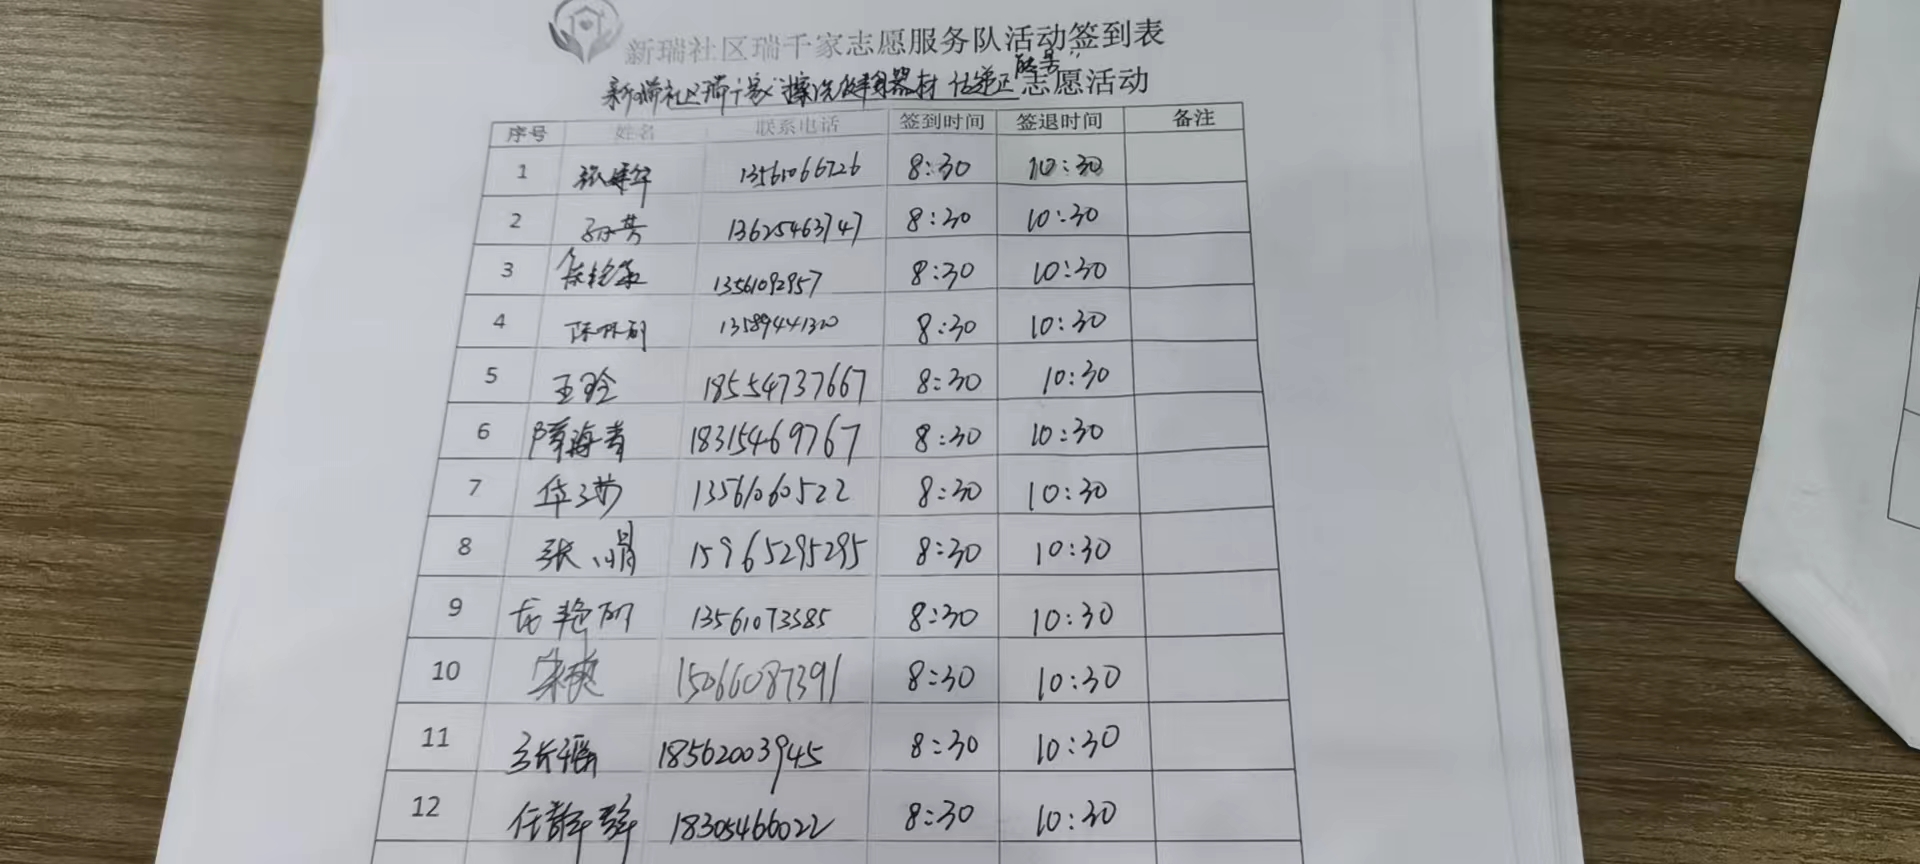 新瑞社区瑞千家志愿服务队活动签到表
新瑞社区瑞千家"擦洗健身器材 传递正能量"志愿活动
序号 姓名 联系电话 签到时间 签退时间 备注
1 张建华 13561066726 8:30 10:30
2 孙芳 13625463747 8:30 10:30
3 13561092957 8:30 10:30
4 13589441320 8:30 10:30
5 王玲 18554737667 8:30 10:30
6 隋海青 18315469767 8:30 10:30
7 13561060522 8:30 10:30
8 张娟 15965295295 8:30 10:30
9 13561073585 8:30 10:30
10 15066087391 8:30 10:30
11 18562003945 8:30 10:30
12 18305466022 8:30 10:30